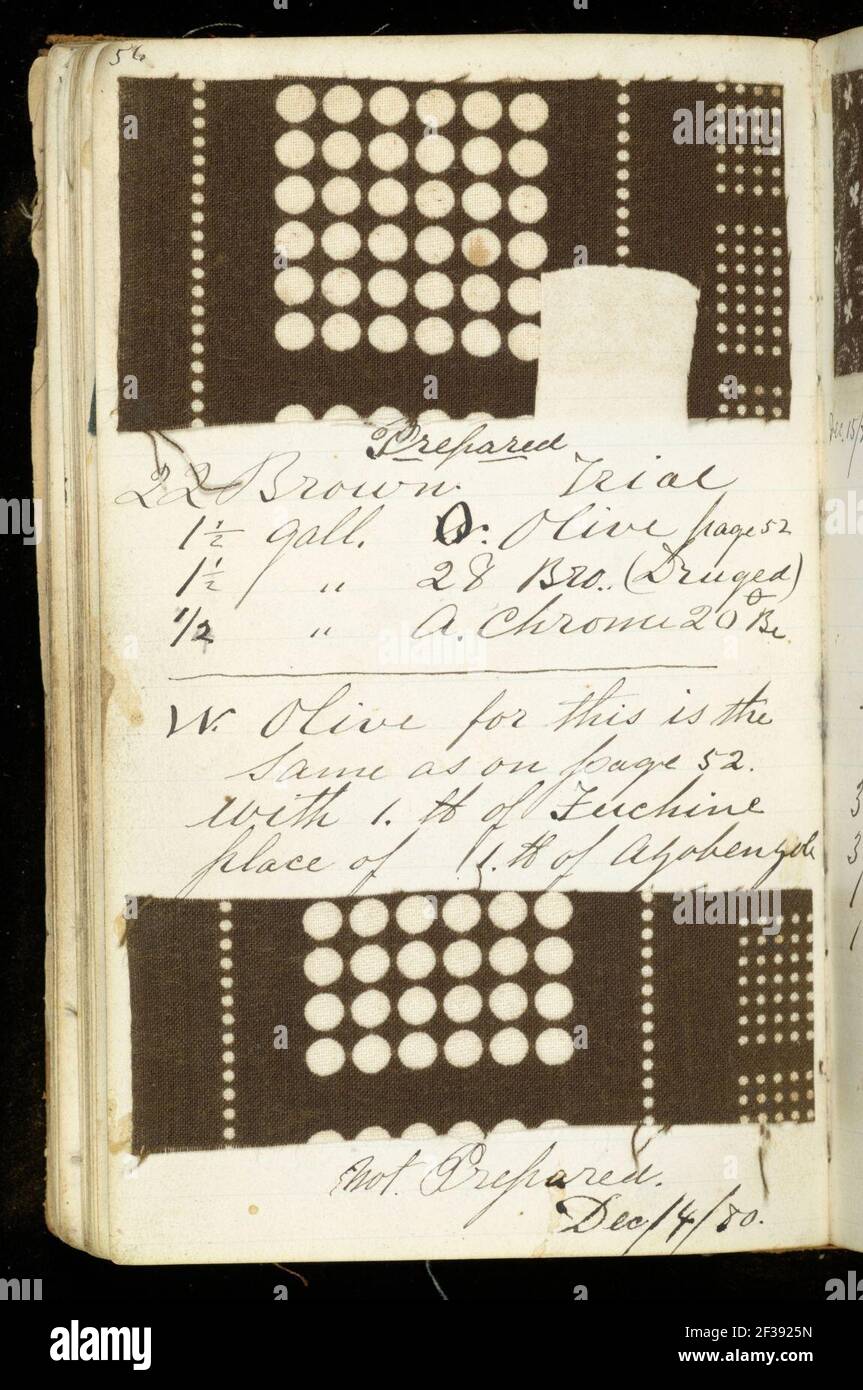 56
Prepared
22 Brown. Trial
1½ gall. Olive page 52
1½ " 28 Bro. (Druged)
1/2 " A. Chrome 20° Be
W. Olive for this is the
same as on page 52.
with 1. ℔ of Fuchine
place of ℔ of Azobenzole
Not. Prepared.
Dec/14/80.
Dec 15/
3
3
1
1
alamy
Image ID: 2F3925N
www.alamy.com